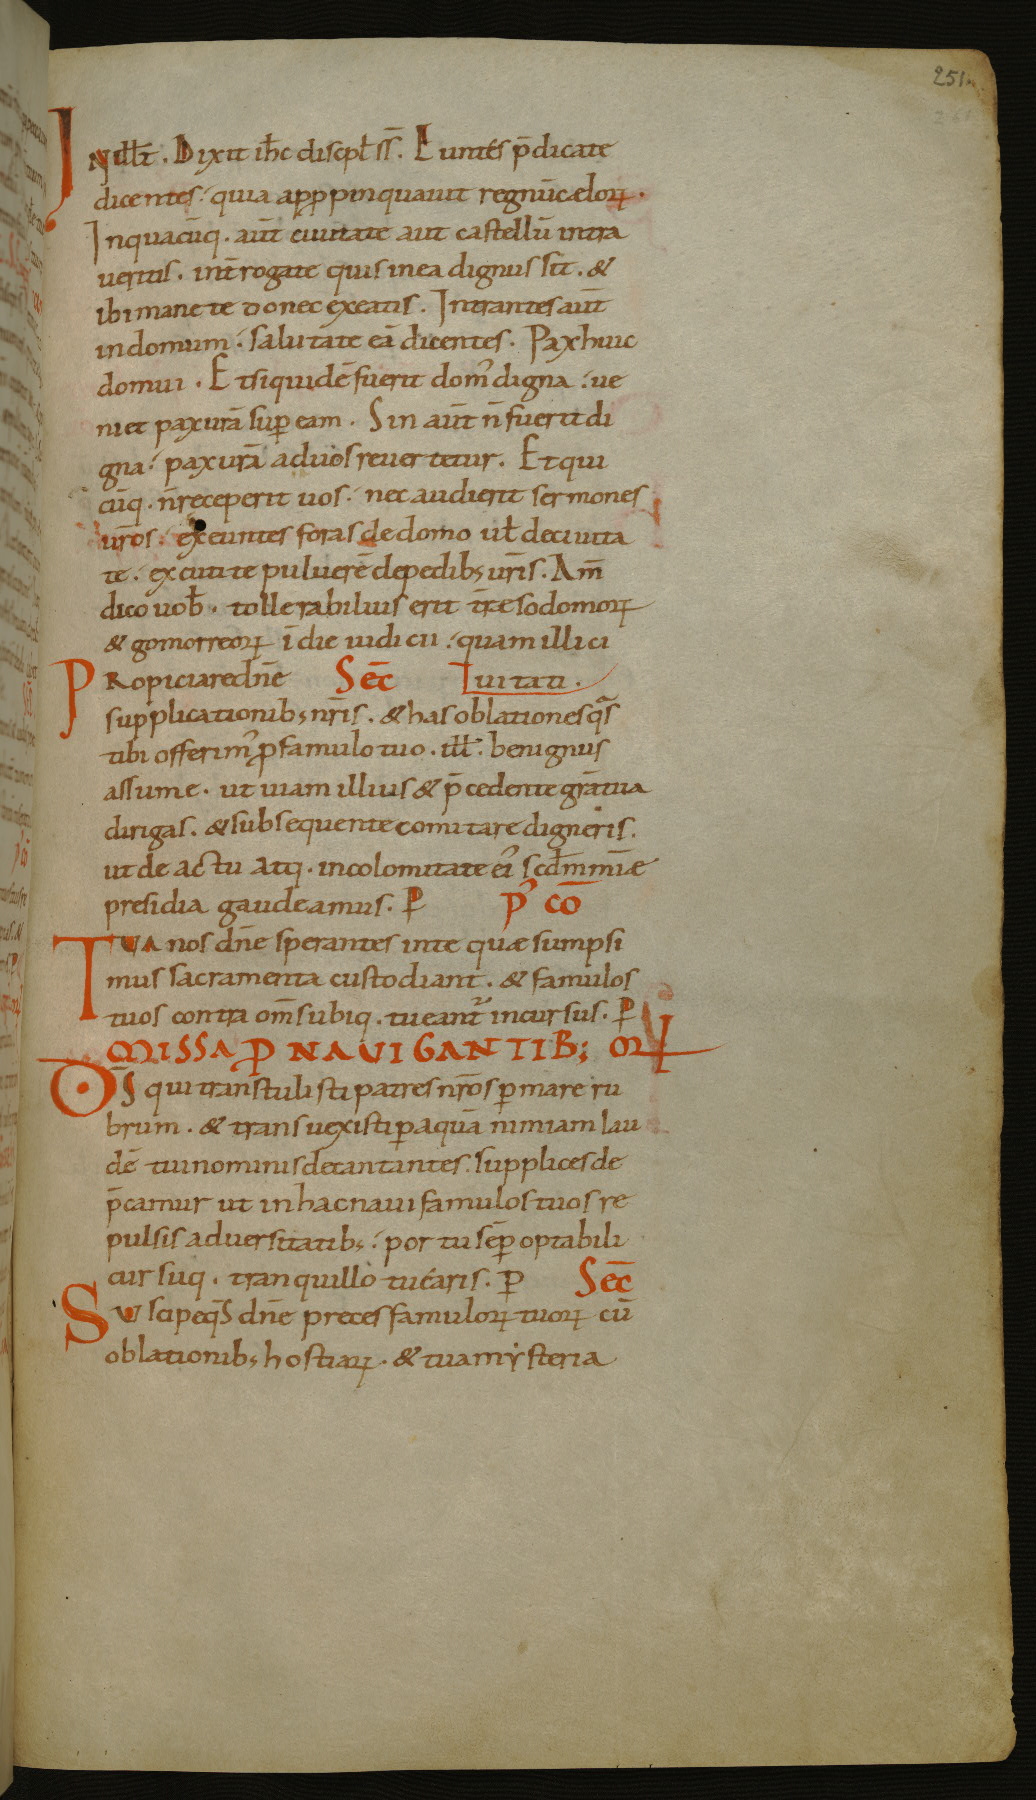 251.
IN ill̄ t̄. Dixit ih̄c discpl̄ ss̄. Euntes p̄dicate
dicentes; quia appropinquauit regnū cælorꝝ.
Inquacūq. aūt ciuitate aut castellū intra
ueritis. int̄rogate quis in ea dignus sit. &
ibi manete donec exeatis. Intrantes aūt
in domum; salutate eā dicentes. Pax huic
domui. Et siquidē fuerit dom᾽ digna; ue
niet pax ur̄a suꝑ eam. Sin aūt n̄ fuerit di
gna; pax ur̄a ad uos reuertetur. Et qui
cūq. n̄ receperit uos; nec audierit sermones
ur̄os; exeuntes foras de domo ul̄ de ciuita
te; excutite puluerē de pedib; ur̄is. Am̄
dico uob̄. tollerabilius erit t̄ræ sodomorꝝ
& gomorreorꝝ ī die iudicii; quam illi ci
PROpiciare dn̄e Sec̄ Iuitati.
supplicationib; nr̄is. & has oblationes qs̄
tibi offerim᾽ ꝓ famulo tuo. ill̄. benignus
assume. ut uiam illius & p̄cedente gr̄a tua
dirigas. & subsequente comitare digneris.
ut de actu atq. incolomitate ei᾽ scd̄m m̄iæ
presidia gaudeamus. P̄ P᾽ cō
TUA nos dn̄e sperantes in te quæ sumpsi
mus sacramenta custodiant. & famulos
tuos contra om̄s ubiq. tueant᾽ incursus. P̄
MISSA P̄ NAVIGANTIB; OR̄
D̄S qui transtulisti patres nr̄os ꝑ mare ru
brum. & transuexisti ꝑ aquā nimiam lau
dē tui nominis decantantes. supplices de
p̄camur ut in hac naui famulos tuos re
pulsis aduersitatib;; portu sēꝑ optabili
cursuq. tranquillo tuearis. P̄ Sec̄
SUscipe qs̄ dn̄e preces famulorꝝ tuorꝝ cū
oblationib; hostiarꝝ. & tua mẏsteria